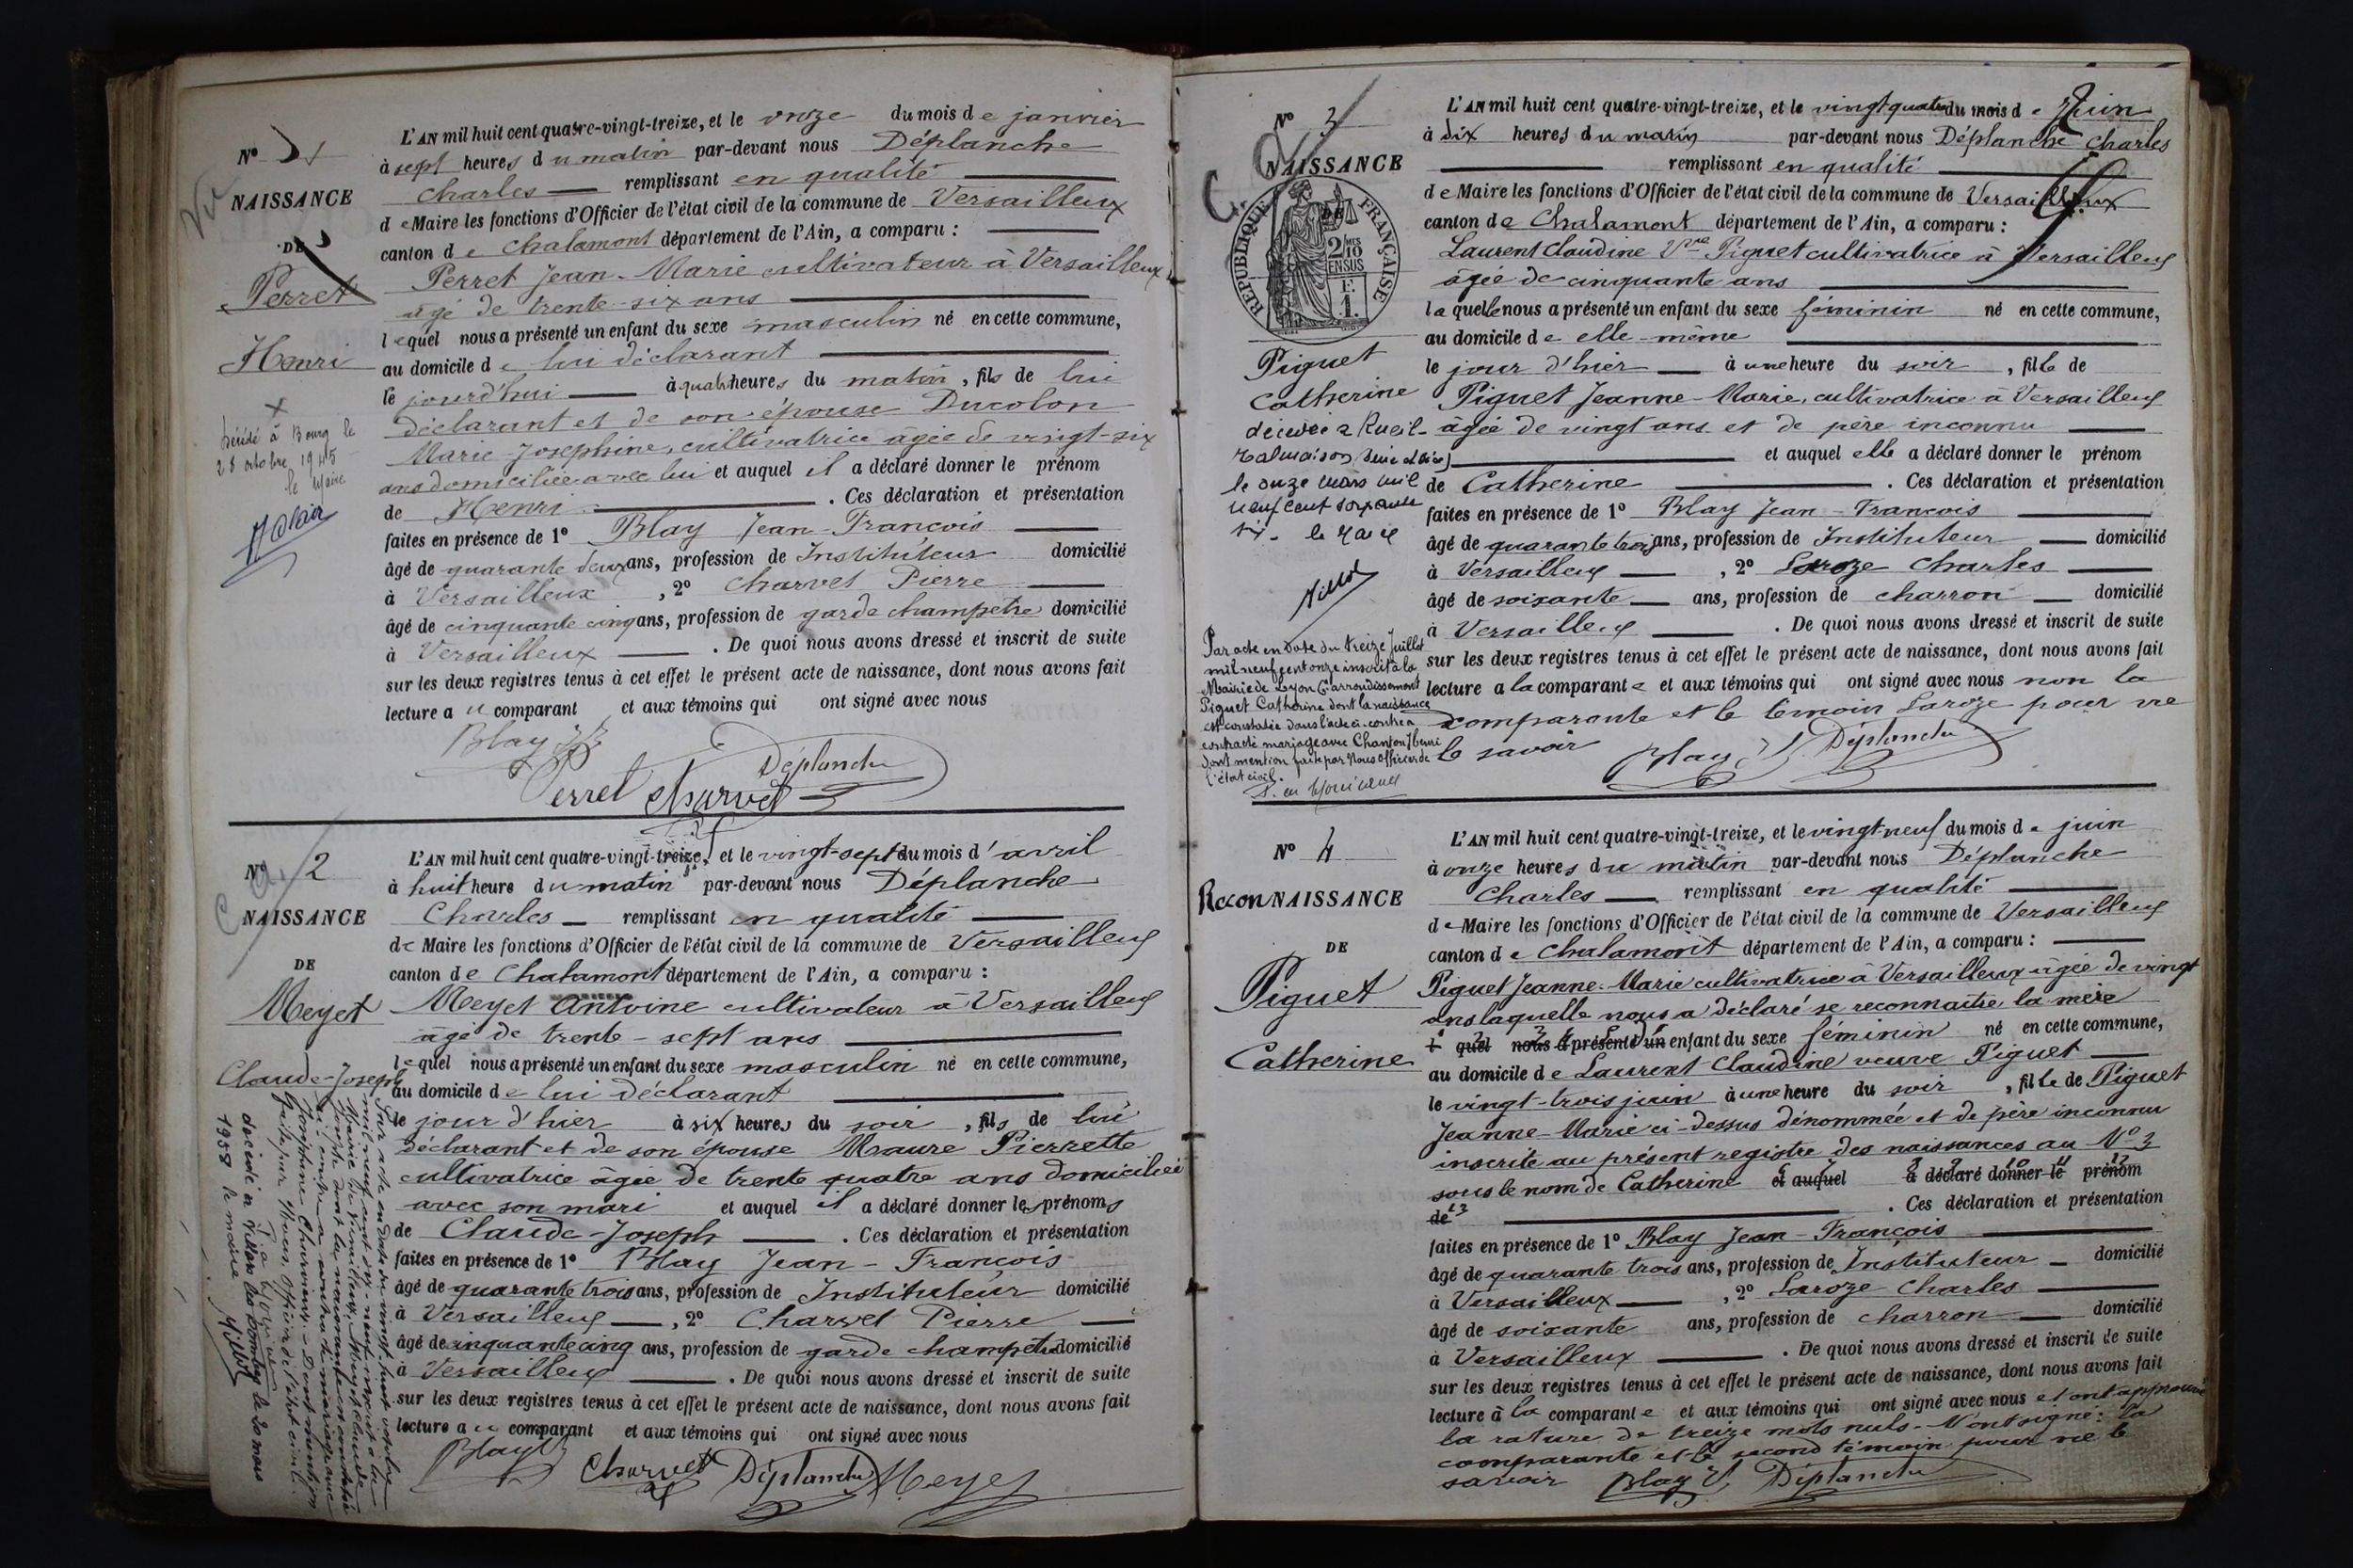 N° 1
NAISSANCE
DE
Perret
Henri
décédé à Bourg le
28 octobre 1945
le Maire
L'AN mil huit cent quatre-vingt-treize, et le onze du mois de janvier
à sept heures du matin par-devant nous Déplanche
Charles remplissant en qualité
de Maire les fonctions d'Officier de l'état civil de la commune de Versailleux
canton de Chalamont département de l'Ain, a comparu :
Perret Jean-Marie cultivateur à Versailleux
âgé de trente-six ans
lequel nous a présenté un enfant du sexe masculin né en cette commune,
au domicile de lui déclarant
le jourd'hui à quatre heures du matin, fils de lui
déclarant et de son épouse Ducolon
Marie-Josephine, cultivatrice âgée de vingt-six
ans domiciliée avec lui et auquel il a déclaré donner le prénom
de Henri. Ces déclaration et présentation
faites en présence de 1° Blay Jean-François
âgé de quarante deux ans, profession de Instituteur domicilié
à Versailleux, 2° Charvet Pierre
âgé de cinquante cinq ans, profession de garde champetre domicilié
à Versailleux. De quoi nous avons dressé et inscrit de suite
sur les deux registres tenus à cet effet le présent acte de naissance, dont nous avons fait
lecture au comparant et aux témoins qui ont signé avec nous
Blay Déplanche
Perret Charvet
N° 2
NAISSANCE
DE
Meyet
Claude-Joseph
L'AN mil huit cent quatre-vingt-treize, et le vingt-sept du mois d'avril
à huit heure du matin par-devant nous Déplanche
Charles remplissant en qualité
de Maire les fonctions d'Officier de l'état civil de la commune de Versailleux
canton de Chalamont département de l'Ain, a comparu :
Meyet Antoine cultivateur à Versailleux
âgé de trente-sept ans
lequel nous a présenté un enfant du sexe masculin né en cette commune,
au domicile de lui déclarant
le jour d'hier à six heures du soir, fils de lui
déclarant et de son épouse Maure Pierrette
cultivatrice âgée de trente quatre ans domiciliée
avec son mari et auquel il a déclaré donner les prénoms
de Claude-Joseph. Ces déclaration et présentation
faites en présence de 1° Blay Jean-François
âgé de quarante trois ans, profession de Instituteur domicilié
à Versailleux, 2° Charvet Pierre
âgé de cinquante cinq ans, profession de garde champetre domicilié
à Versailleux. De quoi nous avons dressé et inscrit de suite
sur les deux registres tenus à cet effet le présent acte de naissance, dont nous avons fait
lecture au comparant et aux témoins qui ont signé avec nous
Blay Charvet Déplanche Meyet
Par acte en date du vingt huit
mil neuf cent dix-neuf inscrit à la
Mairie de Meyet Claude
Joseph dont la naissance est constatée
ci-contre a contracté mariage avec
Dont mention
faite par Nous, Officier de l'état civil.
décédé à Villars les Dombes le 20 mars
1958 le maire
N° 3
NAISSANCE
DE
RÉPUBLIQUE FRANÇAISE
2/10
EN SUS
Piguet
Catherine
décédée à Rueil-
Malmaison (Seine et Oise)
le onze mars mil
neuf cent soixante
six. le Maire
Par acte en date du treize Juillet
mil neuf cent onze inscrit à la
Mairie de Lyon 6e arrondissement
Piguet Catherine dont la naissance
est constatée dans l'acte ci-contre a
contracté mariage avec Chanton Henri
dont mention faite par Nous Officier de
l'état civil.
L'AN mil huit cent quatre-vingt-treize, et le vingt quatre du mois de Juin
à dix heures du matin par-devant nous Déplanche Charles
remplissant en qualité
de Maire les fonctions d'Officier de l'état civil de la commune de Versailleux
canton de Chalamont département de l'Ain, a comparu :
Laurent Claudine Vve Piguet cultivatrice à Versailleux
âgée de cinquante ans
laquelle nous a présenté un enfant du sexe féminin né en cette commune,
au domicile de elle-même
le jour d'hier à une heure du soir, fille de
Piguet Jeanne-Marie, cultivatrice à Versailleux
âgée de vingt ans et de père inconnu
et auquel elle a déclaré donner le prénom
de Catherine. Ces déclaration et présentation
faites en présence de 1° Blay Jean-François
âgé de quarante trois ans, profession de Instituteur domicilié
à Versailleux, 2° Laroze Charles
âgé de soixante ans, profession de charron domicilié
à Versailleux. De quoi nous avons dressé et inscrit de suite
sur les deux registres tenus à cet effet le présent acte de naissance, dont nous avons fait
lecture a la comparante et aux témoins qui ont signé avec nous non la
comparante et le témoin Laroze pour ne
le savoir Blay Déplanche
N° 4
ReconNAISSANCE
DE
Piguet
Catherine
L'AN mil huit cent quatre-vingt-treize, et le vingt-neuf du mois de juin
à onze heures du matin par-devant nous Déplanche
Charles remplissant en qualité
de Maire les fonctions d'Officier de l'état civil de la commune de Versailleux
canton de Chalamont département de l'Ain, a comparu :
Piguet Jeanne-Marie cultivatrice à Versailleux âgée de vingt
ans laquelle nous a déclaré se reconnaître la mère
l quel nous a présenté un enfant du sexe féminin né en cette commune,
au domicile de Laurent Claudine veuve Piguet
le vingt-trois juin à une heure du soir, fille de Piguet
Jeanne-Marie ci-dessus dénommée et de père inconnu
inscrite au présent registre des naissances au N° 3
sous le nom de Catherine et auquel a déclaré donner le prénom
de. Ces déclaration et présentation
faites en présence de 1° Blay Jean-François
âgé de quarante trois ans, profession de Instituteur domicilié
à Versailleux, 2° Laroze Charles
âgé de soixante ans, profession de charron domicilié
à Versailleux. De quoi nous avons dressé et inscrit de suite
sur les deux registres tenus à cet effet le présent acte de naissance, dont nous avons fait
lecture à la comparante et aux témoins qui ont signé avec nous et ont approuvé
la rature de treize mots nuls. N'ont signé: la
comparante et le second témoin pour ne le
savoir Blay Déplanche